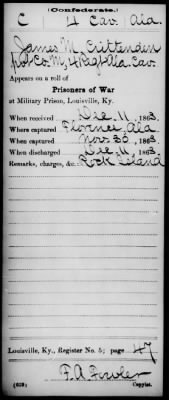 Confederate.
C 4 Cav. Ala.
James M. Crittenden
Pvt Co. M, 4 Regt Ala. Cav.
Appears on a roll of
Prisoners of War
at Military Prison, Louisville, Ky.
When received Dec 11, 1863.
Where captured Florence, Ala
When captured Nov. 30, 1863.
When discharged Dec 11, 1863.
Remarks, charges, &c. Rock Island
Louisville, Ky., Register No. 5; page 47
F. A. Fowler
(639) Copyist.